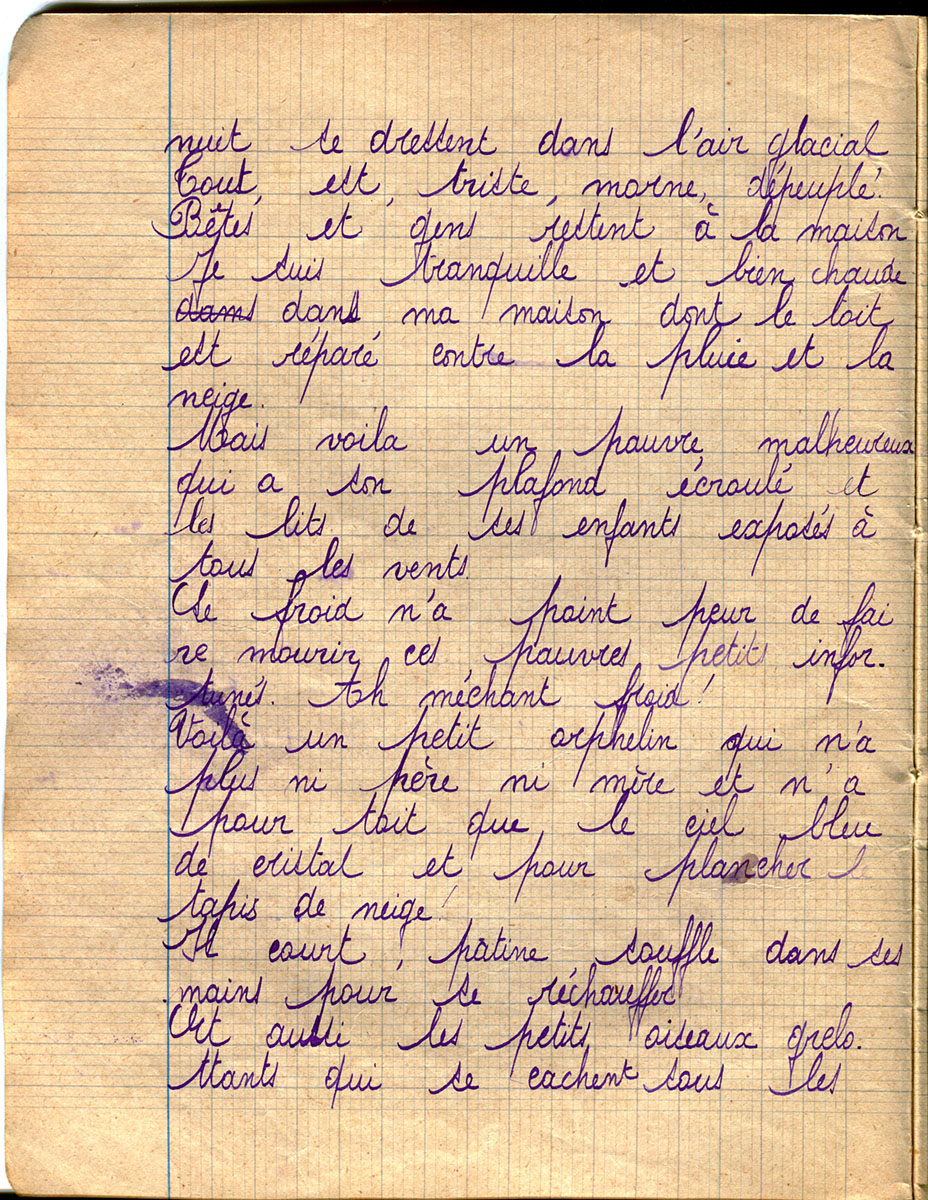 nuit se dressent dans l'air glacial
Tout est triste, morne, dépeuplé.
Bêtes et gens restent à la maison
Je suis tranquille et bien chaude
dams dans ma maison dont le toit
est réparé contre la pluie et la
neige.
Mais voila un pauvre malheureux
qui a son plafond écroulé et
les lits de ses enfants exposés à
tous les vents.
Le froid n'a point peur de fai
re mourir ces pauvres petits infor-
tunés. Ah méchant froid!
Voilà un petit orphelin qui n'a
plus ni père ni mère et n'a
pour toit que le ciel bleu
de cristal et pour plancher le
tapis de neige!
Il court, patine souffle dans ses
mains pour se réchauffer
Et aussi les petits oiseaux grelo-
ttants qui se cachent sous les